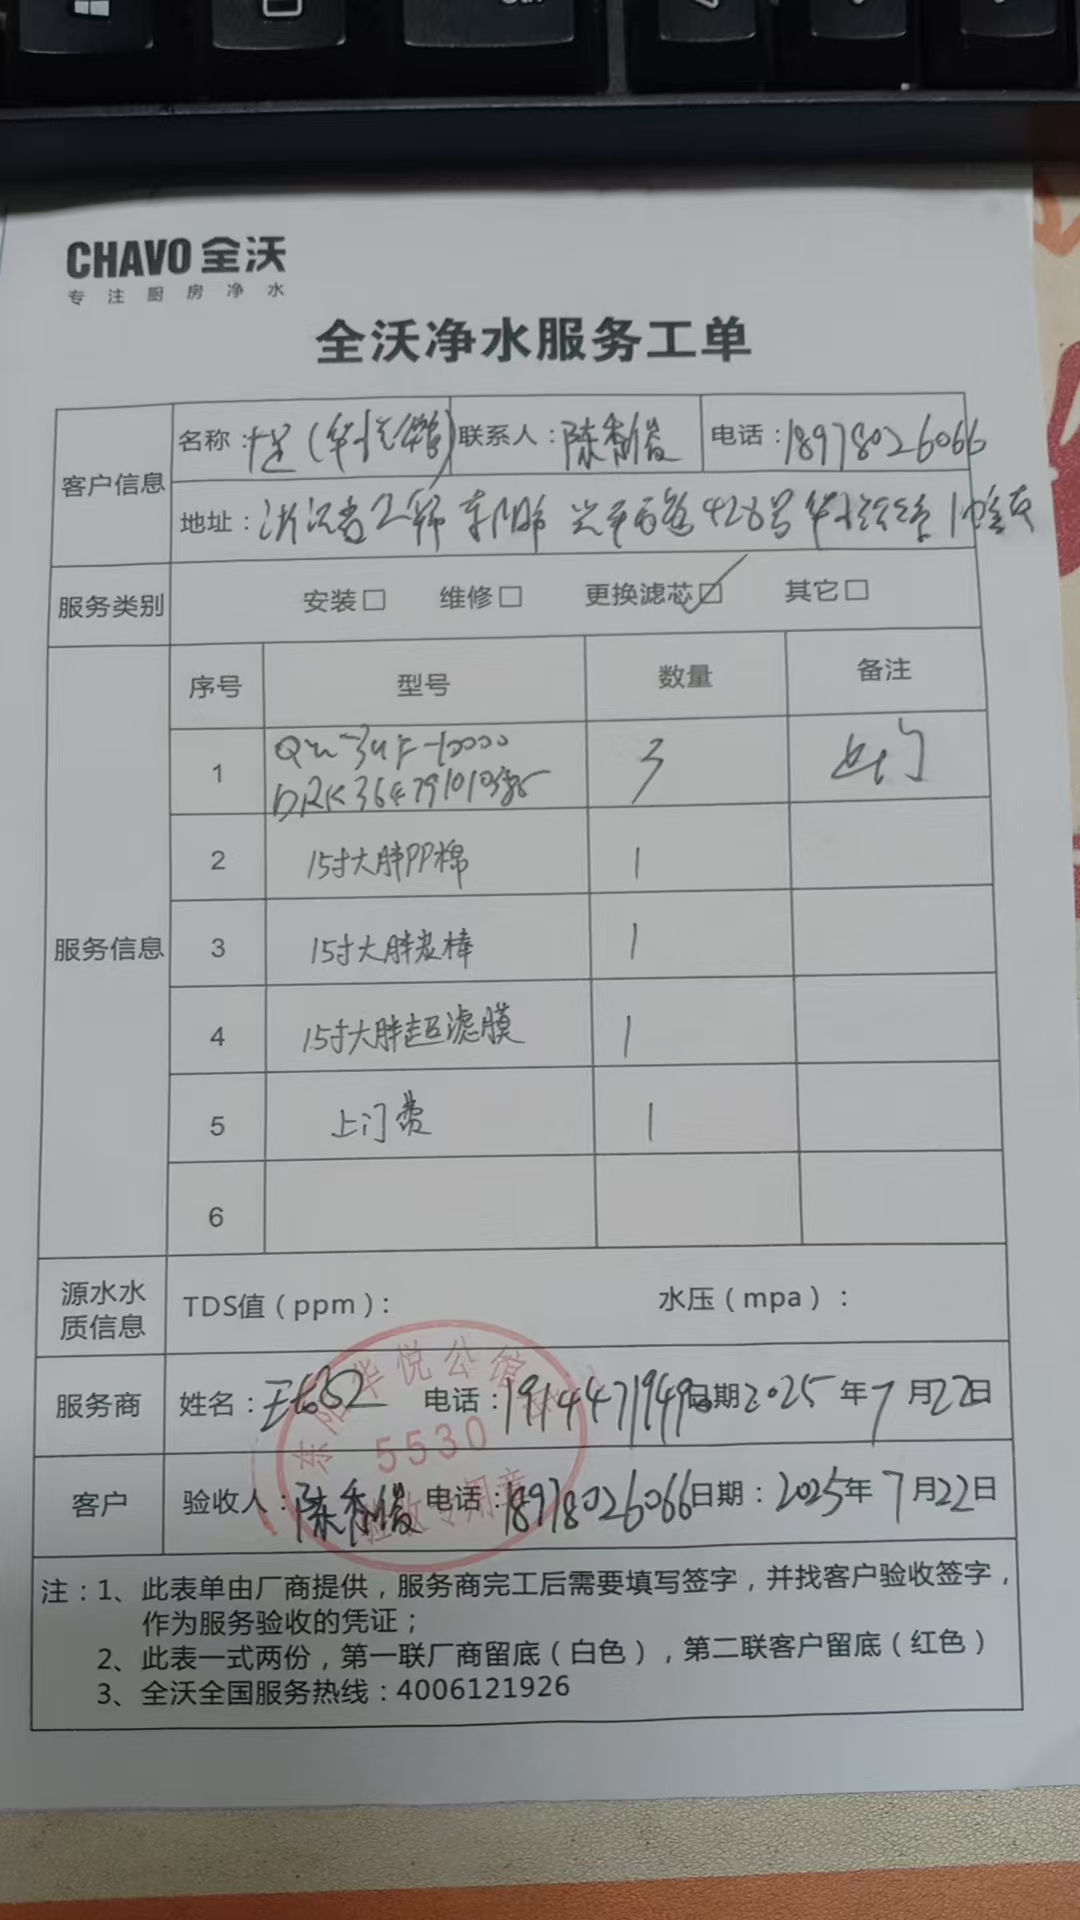 CHAVO 全沃
专注厨房净水
全沃净水服务工单
客户信息
名称: 联系人: 陈 电话: 18978026066
地址: 浙江省 东阳市 路428号
服务类别 安装□ 维修□ 更换滤芯☑ 其它□
服务信息
序号 型号 数量 备注
1 3 上门
2 15寸大胖PP棉 1
3 15寸大胖炭棒 1
4 15寸大胖超滤膜 1
5 上门费 1
6
源水水质信息 TDS值(ppm): 水压(mpa):
服务商 姓名: 电话: 日期: 2025年7月22日
客户 验收人: 陈 电话: 18978026066 日期: 2025年7月22日
华悦公馆
5530
验收专用章
注:1、此表单由厂商提供,服务商完工后需要填写签字,并找客户验收签字,
作为服务验收的凭证;
2、此表一式两份,第一联厂商留底(白色),第二联客户留底(红色)
3、全沃全国服务热线:4006121926